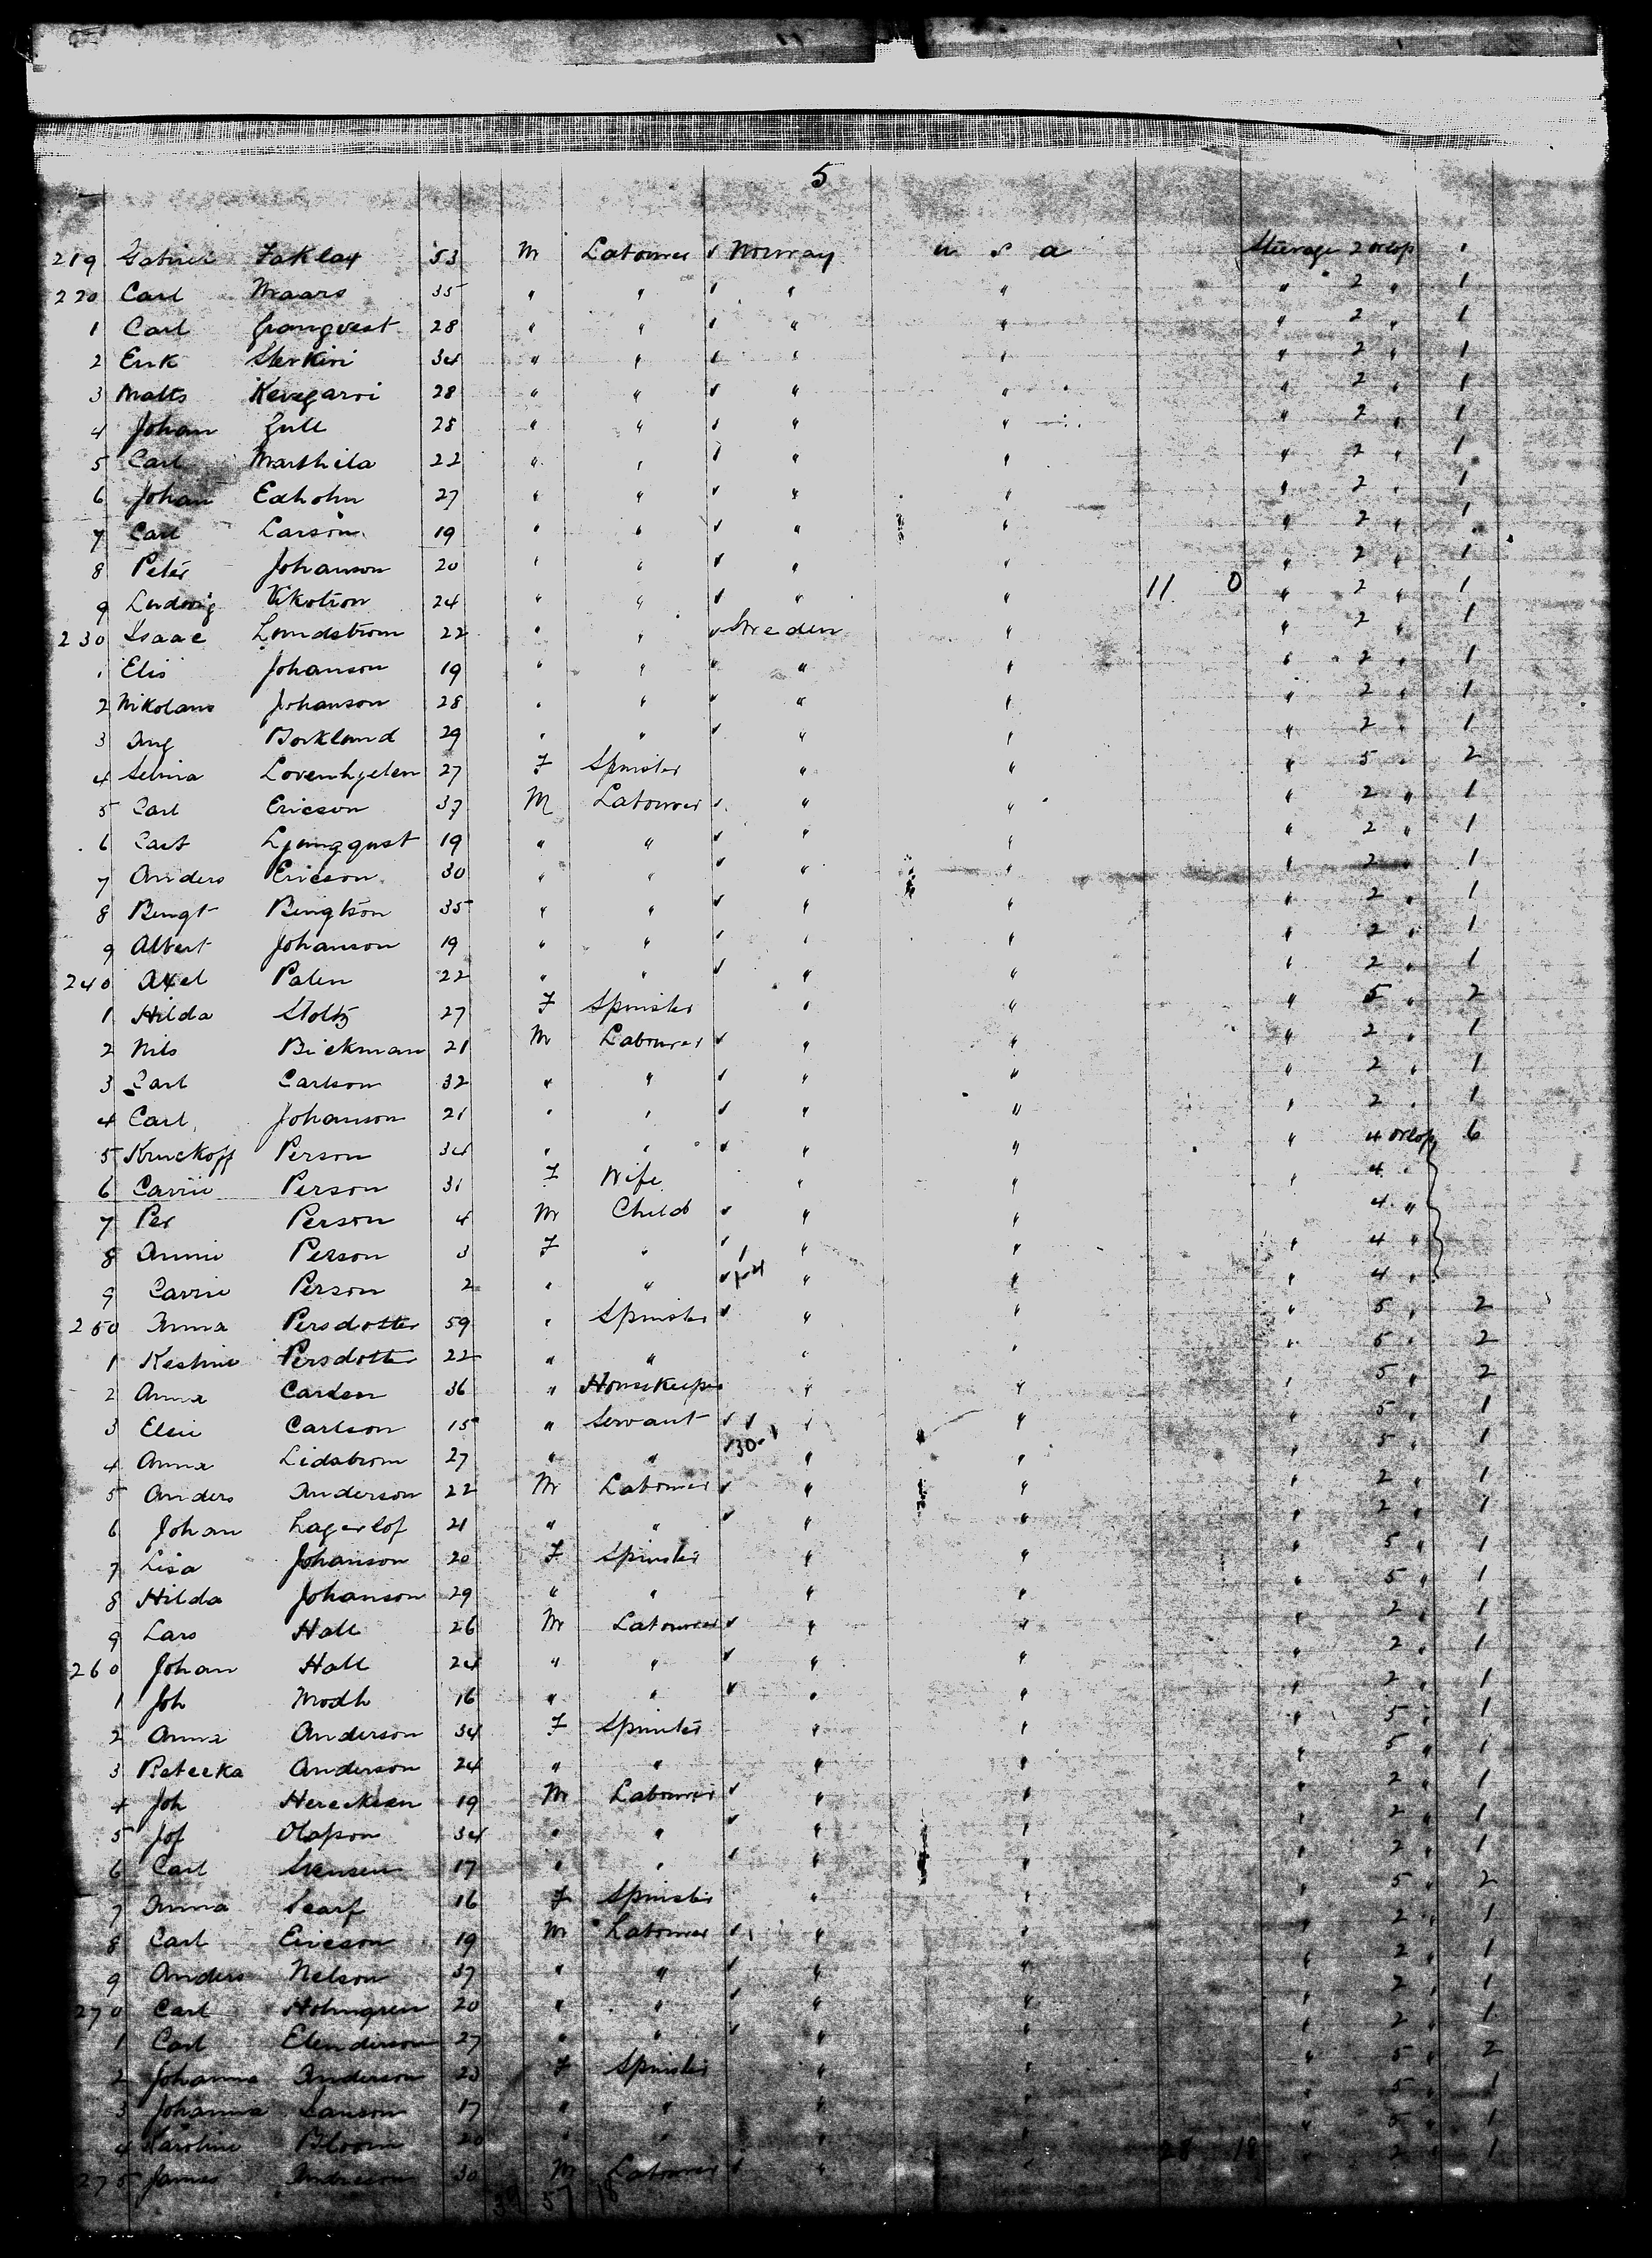 5
219 Gabriel Faklax 53 M Labourer Norway U S A Steerage 2 orlop 1
220 Carl Maars 35 " " " " " 2 " 1
1 Carl Granqvest 28 " " " " " 2 " 1
2 Erik Sterkiri 34 " " " " " 2 " 1
3 Matts Kevegarvi 28 " " " " " 2 " 1
4 Johan Gull 28 " " " " " 2 " 1
5 Carl Marthila 22 " " " " " 2 " 1
6 Johan Edholm 27 " " " " " 2 " 1
7 Carl Larson 19 " " " " " 2 " 1
8 Peter Johanson 20 " " " " " 2 " 1
9 Ludwig 24 " " " " 11 0 " 2 " 1
230 Isaac Lundstrom 22 " " Sweden " " 2 " 1
1 Elis Johanson 19 " " " " " 2 " 1
2 Nikolaus Johanson 28 " " " " " 2 " 1
3 Aug Borklund 29 " " " " " 2 " 1
4 Selma Lovenhjelen 27 F Spinster " " " 5 " 2
5 Carl Ericson 37 M Labourer " " " 2 " 1
6 Carl Ljungqust 19 " " " " " 2 " 1
7 Anders Ericson 30 " " " " " 2 " 1
8 Bengt Bengtson 35 " " " " " 2 " 1
9 Albert Johanson 19 " " " " " 2 " 1
240 Axel Palen 22 " " " " " 2 " 1
1 Hilda Stoltz 27 F Spinster " " " 5 " 2
2 Nils Bickman 21 M Labourer " " " 2 " 1
3 Carl Carlson 32 " " " " " 2 " 1
4 Carl Johanson 21 " " " " " 2 " 1
5 Kruckoff Person 34 " " " " " 4 orlop 6
6 Carrie Person 31 F Wife " " " 4 "
7 Per Person 4 M Child " " 4 "
8 Annie Person 3 F " " " " 4 "
9 Carrie Person 2 " " " " " 4 "
250 Anna Persdotter 59 " Spinster " " " 5 " 2
1 Kestine Persdotter 22 " " " " " 5 " 2
2 Anna Carlsen 36 " Housekeeper " " " 5 " 2
3 Elsie Carlson 15 " Servant " " " 5 " 1
4 Anna Lidstrom 27 " " 30-1 " " " 5 " 1
5 Anders Anderson 22 M Labourer " " " 2 " 1
6 Johan Lagerlof 21 " " " " " 2 " 1
7 Lisa Johanson 20 F Spinster " " " 5 " 1
8 Hilda Johanson 29 " " " " " 5 " 1
9 Lars Hall 26 M Labourer " " " 2 " 1
260 Johan Hall 24 " " " " " 2 " 1
1 Joh Modh 16 " " " " " 2 " 1
2 Anna Anderson 34 F Spinster " " " 5 " 1
3 Betecka Anderson 24 " " " " " 5 " 1
4 Joh 19 M Labourer " " " 2 " 1
5 Jof Olafson 34 " " " " " 2 " 1
6 Carl Svensen 17 " " " " " 2 " 1
7 Anna Scarf 16 F Spinster " " " 5 " 2
8 Carl Ericson 19 M Labourer " " " 2 " 1
9 Anders Nelson 37 " " " " " 2 " 1
270 Carl Holmgren 20 " " " " " 2 " 1
1 Carl Elenderson 27 " " " " " 2 " 1
2 Johanna Anderson 23 F Spinster " " " 5 " 2
3 Johanna Lanson 17 " " " " " 5 " 1
4 Karoline Bloom 20 " " " " 28 18 " 5 " 1
275 James Andreson 30 M Labourer " " " 2 " 1
39 57 18